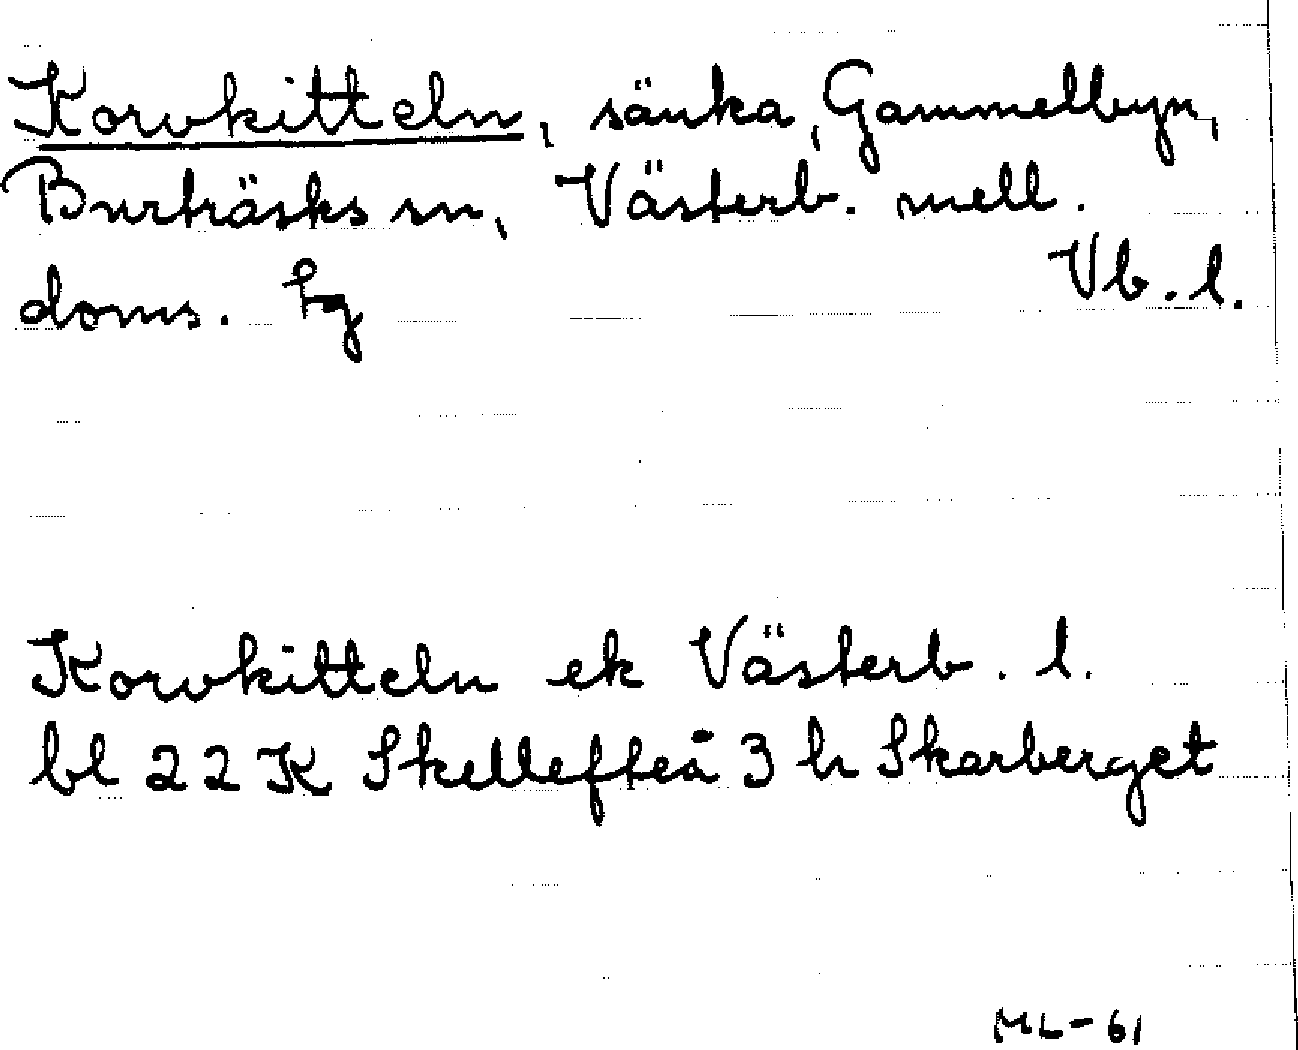 Korvkitteln, sänka, Gammelbyn,
Burträsks sn, Västerb. mell.
doms. Hg Vb. l.
Korvkitteln ek Västerb. l.
bl 22 K Skellefteå 3 h Skarberget
ML-61